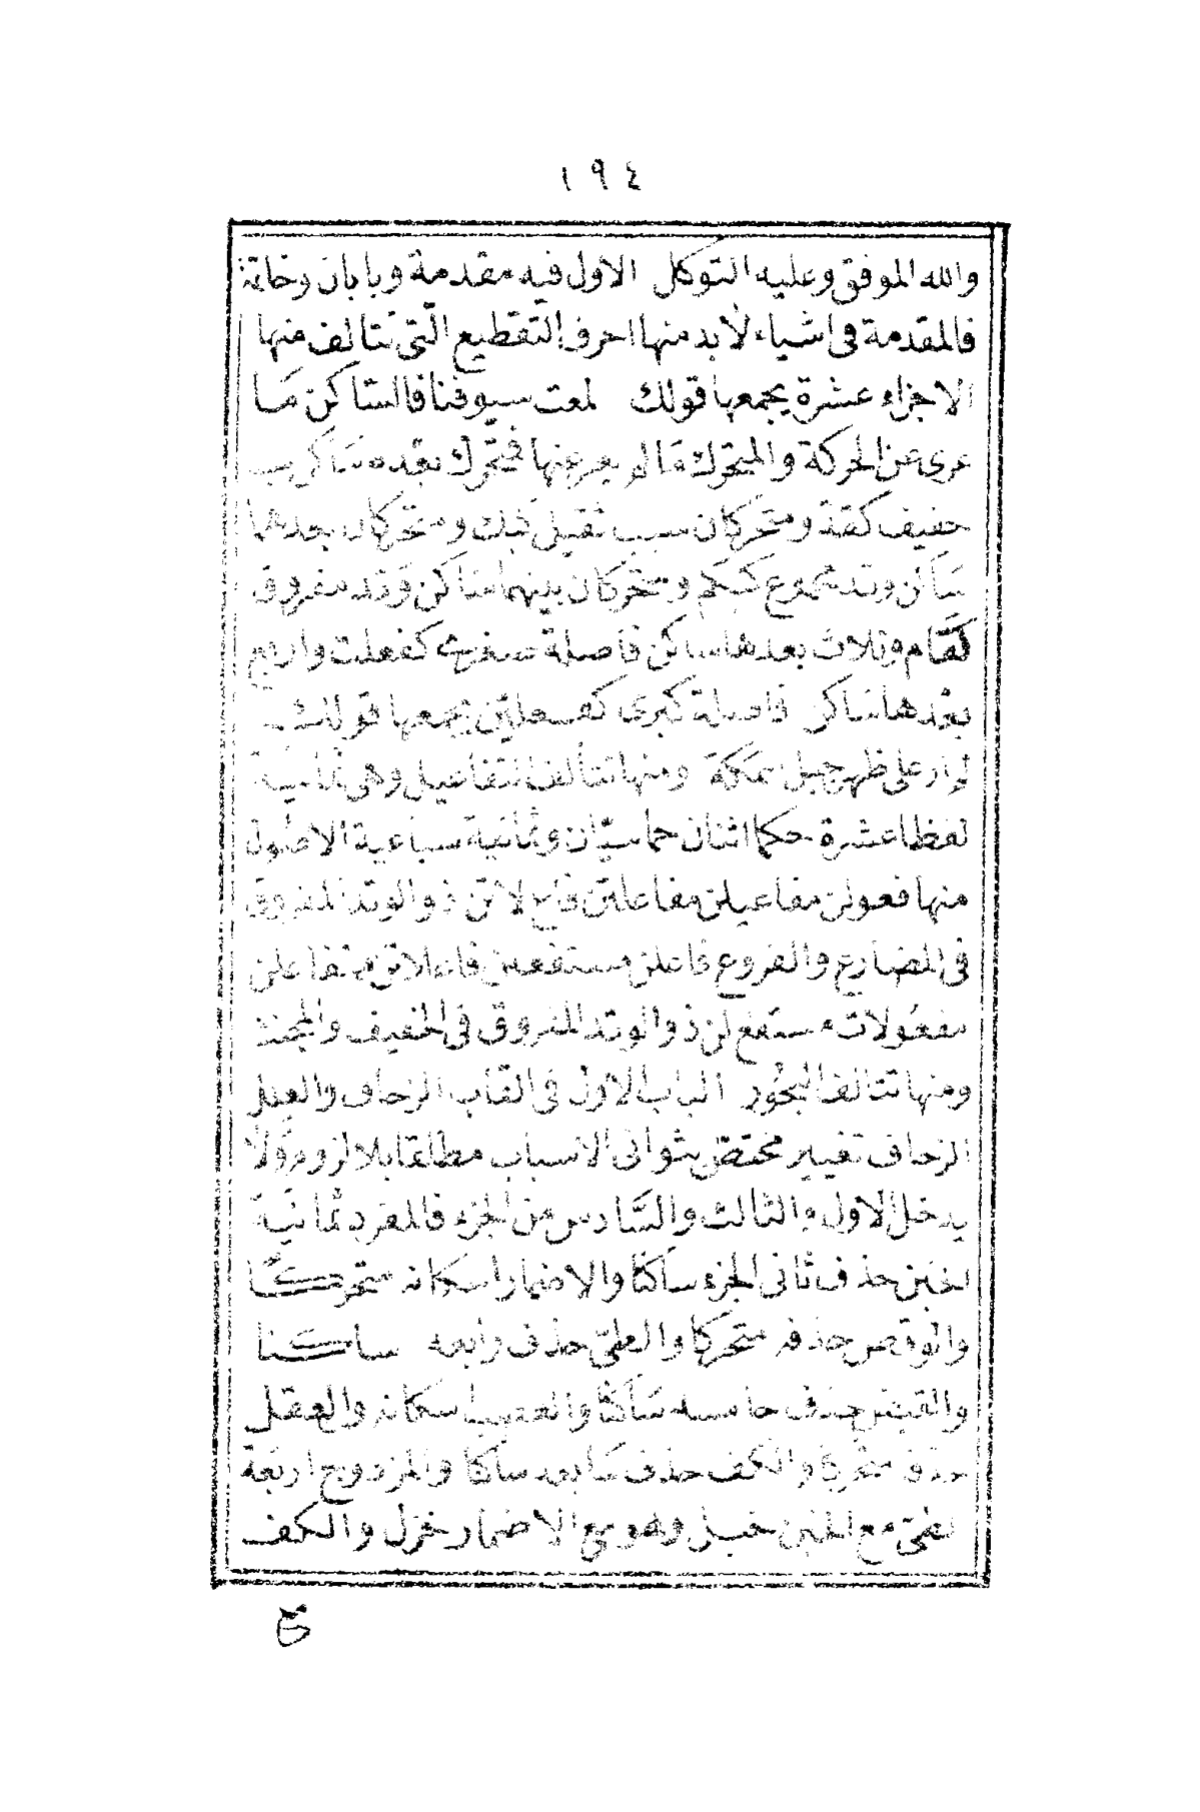 ١٩٤
والله الموفق وعليه التوكل الاول فيه مقدمة وبابان وخاتمة
فالمقدمة فى اشياء لابد منها احرف التقطيع الّتى تتالف منها
الاجزاء عشرة يجمعها قولك لمعت سيوفنا فالساكن مَا
عرى عن الحركة والمتحرك مَا لم يعر عنها فمتحرك بعده سَاكن سبب
خفيف كقد ومتحركان سبب ثقيل كبك ومتحركان بعدهما
سَاكن وتد مجموع كبكم ومتحركان بينهما سَاكن وتد مفروق
كقَام وثلاث بعدها ساكن فاصلة صغرى كفعلت واربع
بعْدها سَاكن فاصلة كبرى كفعلتن يجمعها قولك
لم ار على ظهر جبل سمكة ومنها تتألف التفاعيل وهى ثمانية
لفظا عشرة حكما اثنان خماسيّان وثمانية سباعية الاصُول
منها فعولن مفاعيلن مفاعلتن فاع لاتن ذو الوتد المفروق
فى المضارع والفروع فاعلن مستفعلن فاعلاتن متفاعلن
مفعُولات مستفع لن ذو الوتد المفروق فى الخفيف والمجتث
ومنها تتالف البحُور الباب الاول فى القاب الزحاف والعلل
الزحاف تغيير مختصّ بثوانى الاسباب مطلقا بلا لزوم ولَا
يدخل الاول والثالث والسَّادس من الجزء فالمفرد ثمانية
الخبن حذف ثانى الجزء ساكنًا والاضمار اسكانه متحركًا
والوقص حذفه متحركا والطىّ حذف رابعه ساكنا
والقبض حذف خامسه سَاكنًا والعصب اسكانه والعقل
حذفه متحركا والكف حذف سَابعه ساكنا والمزدوج اربَعة
الطىّ مع الخبن خبل وهو مع الاضمار خزل والكف
مع